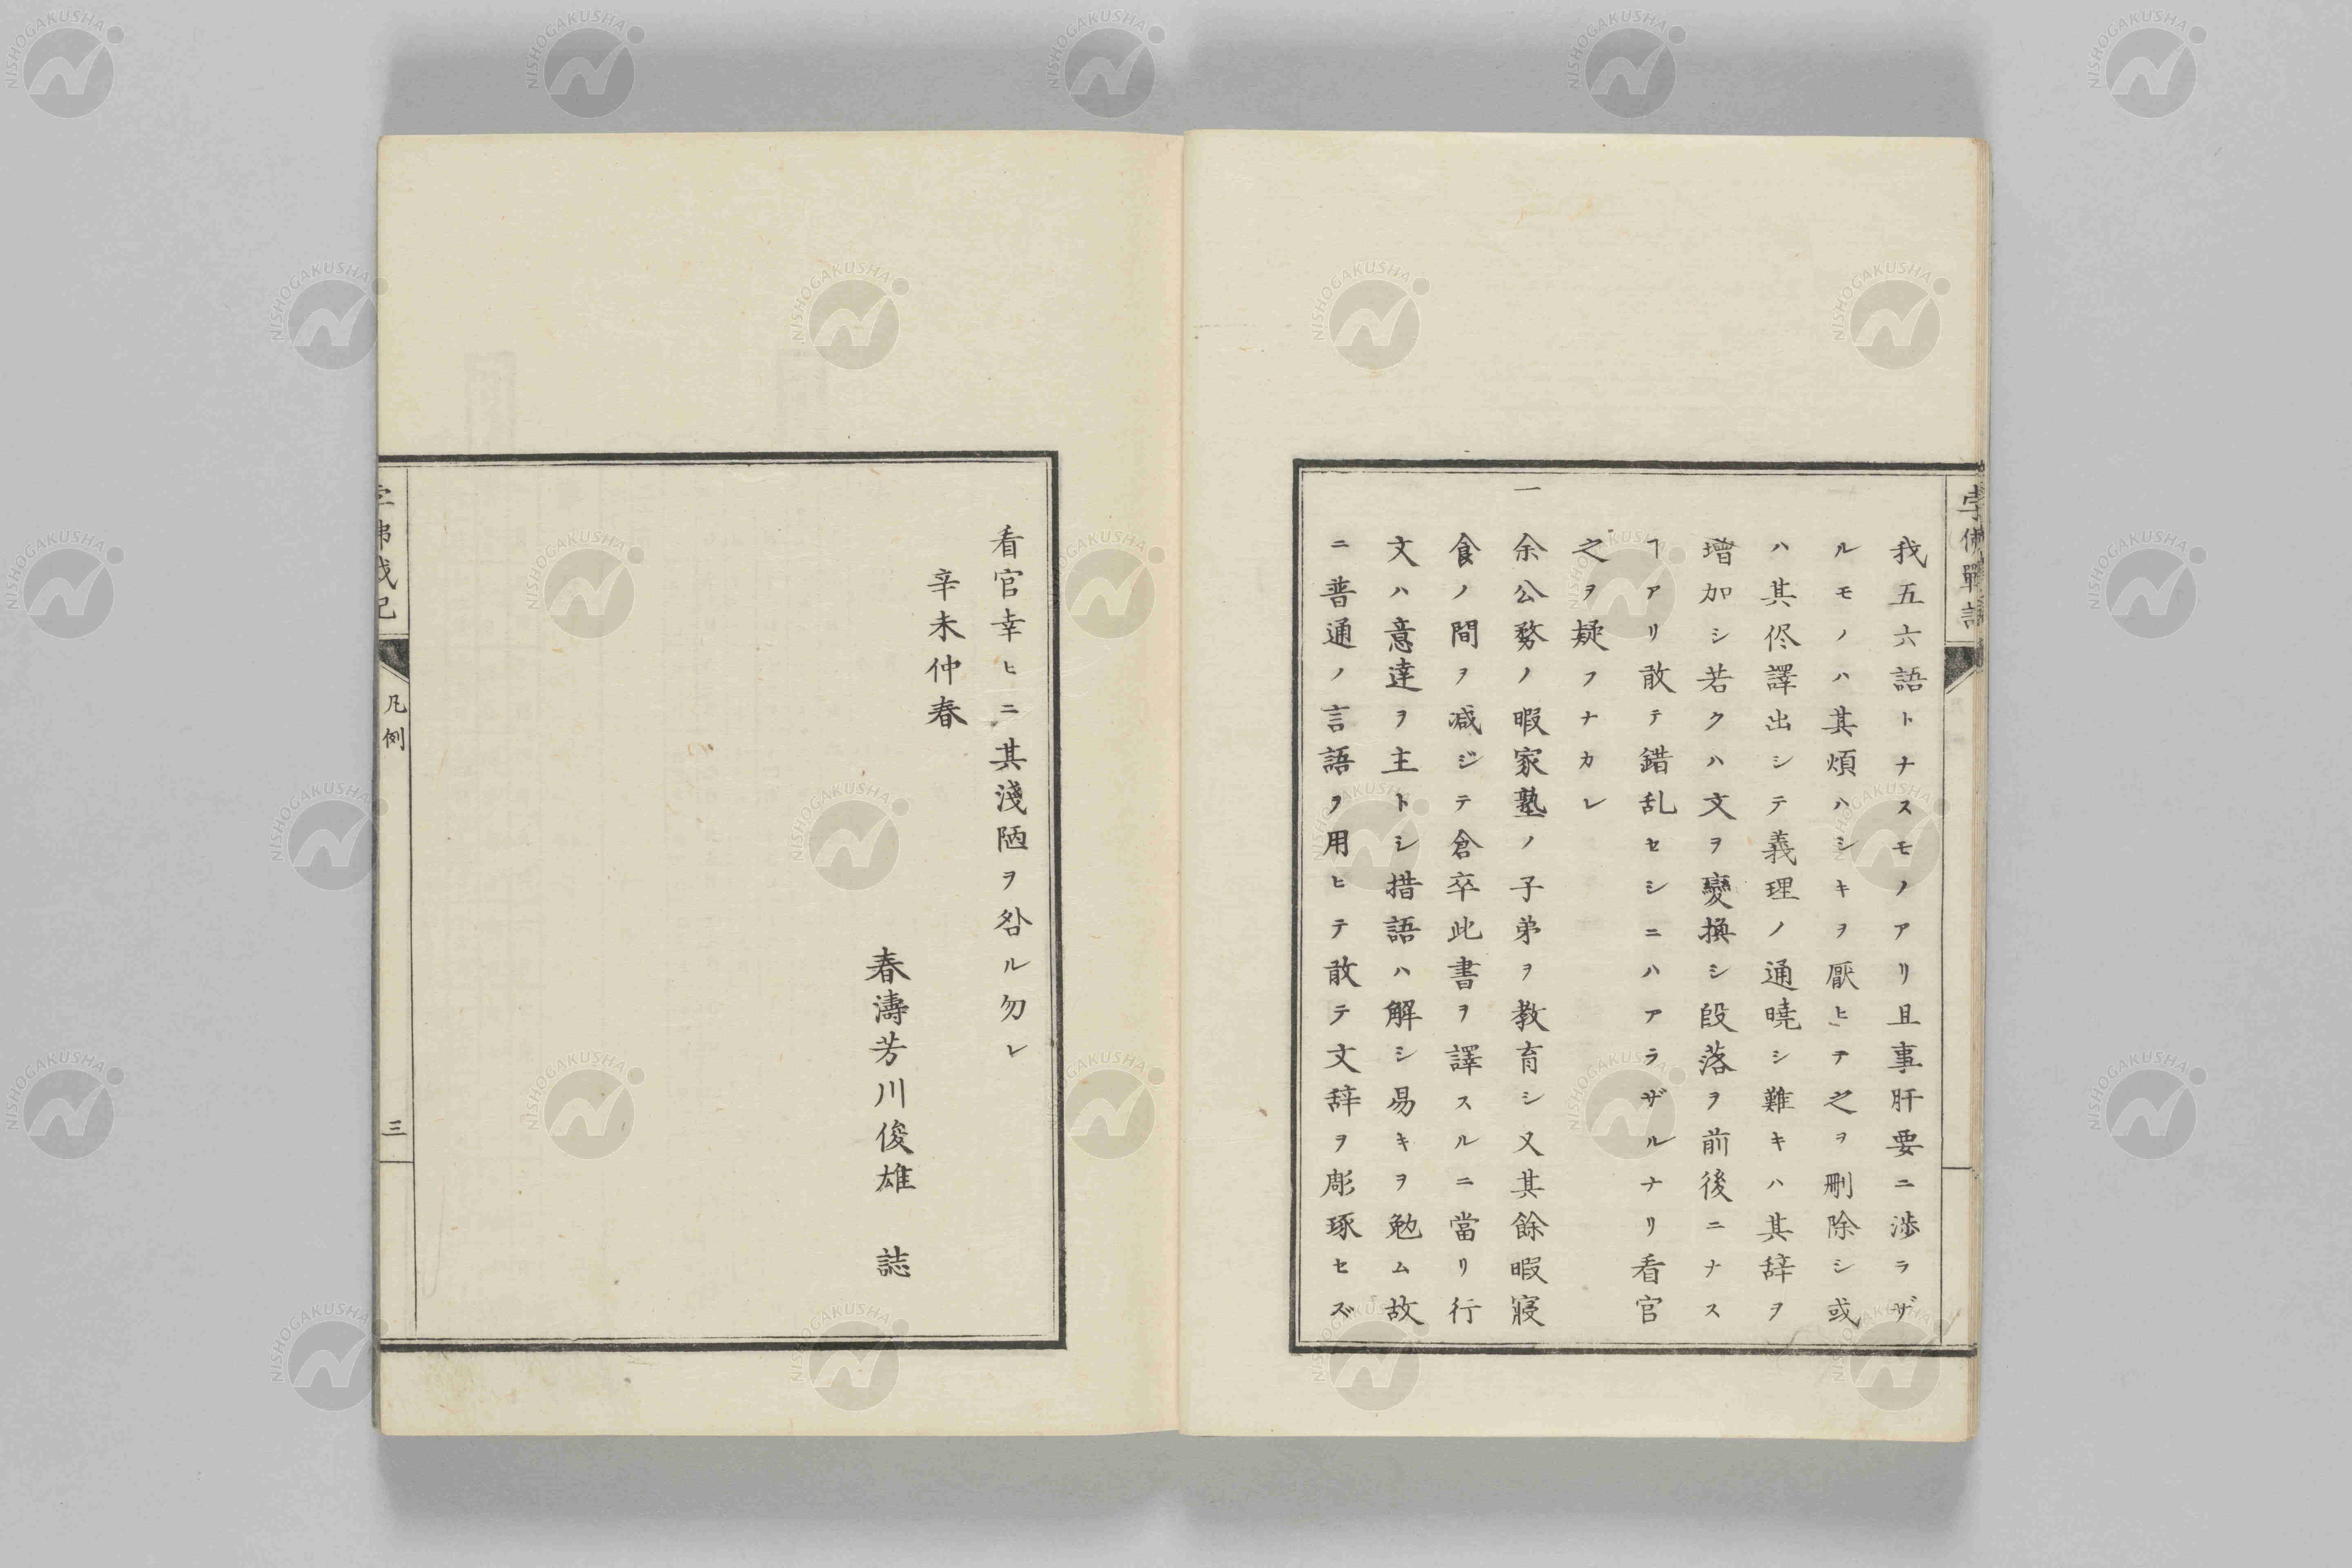 我五六語トナスモノアリ且事肝要ニ渉ラザ
ルモノハ其煩ハシキヲ厭ヒテ之ヲ刪除シ或
ハ其侭譯出シテ義理ノ通曉シ難キハ其辞ヲ
増加シ若クハ文ヲ變換シ段落ヲ前後ニナス
ヿアリ敢テ錯乱セシニハアラザルナリ看官
之ヲ疑フナカレ
一余公務ノ暇家塾ノ子弟ヲ教育シ又其餘暇寢
食ノ間ヲ减ジテ倉卒此書ヲ譯スルニ當リ行
文ハ意達ヲ主トシ措語ハ解シ易キヲ勉ム故
ニ普通ノ言語ヲ用ヒテ敢テ文辞ヲ彫琢セズ
看官幸ヒニ其淺陋ヲ咎ル勿レ
辛未仲春
春濤芳川俊雄 誌
凡例
三
NISHOGAKUSHA